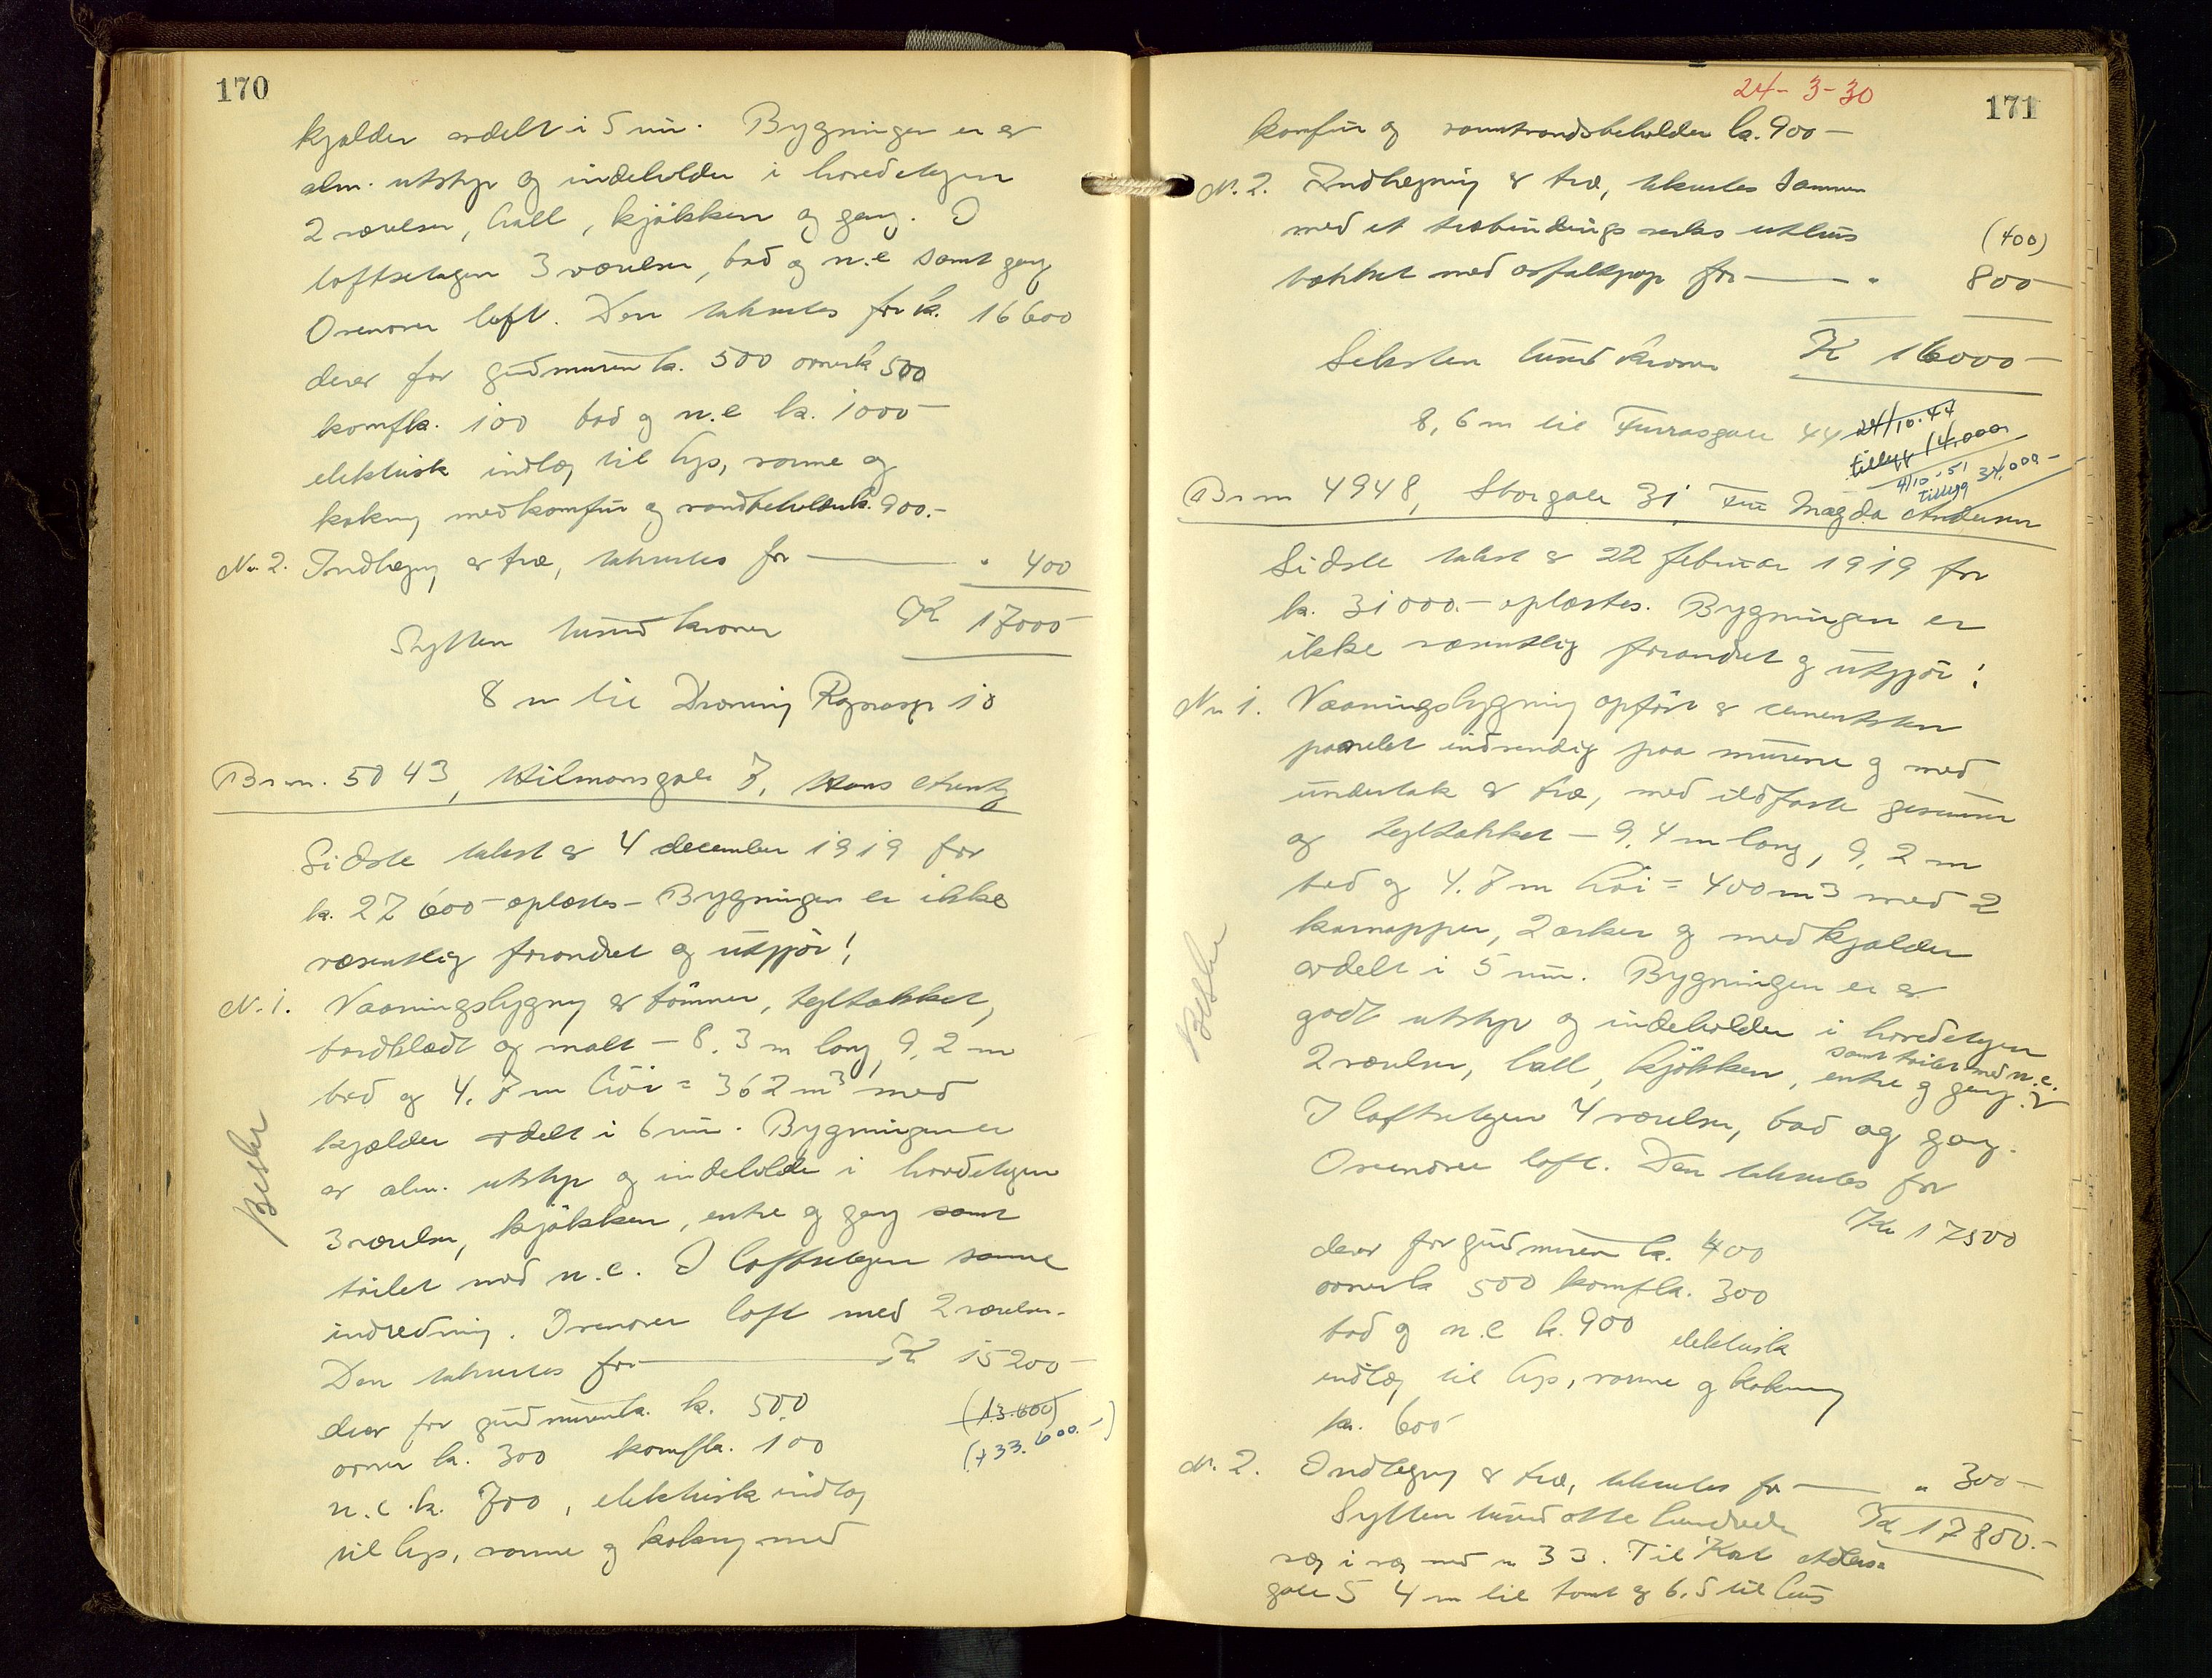 170
kjælder avdelt i 5 rum. Bygningen er av
alm. utstyr og indeholder i hovedetagen
2 værelser, hall, kjøkken og gang. I
loftsetagen 3 værelser, bad og w.c samt gang
Ovenover loft. Den takseres for k. 16600
derav for grudmuren k. 500 ovner k 500
komf k. 100 bad og w.c k. 1000-
elektrisk indlæg til lys, varme og
kokning med komfur og vandbeholder k. 900.-
Nr 2. Indhegning av træ, takseres for — " 400
Sytten tusind kroner K 17000-
8 m til Dronning Ragnasgt 10
Br nr. 5043, Hilmarsgate 7, Hans
Sidste takst av 4 december 1919 for
k. 27600- oplæstes - Bygningen er ikke
væsentlig forandret og utgjør!
N. 1. Vaaningsbygning av tømmer, tegltækket,
bordklædt og malt - 8,3 m lang, 9,2 m
bred og 4,7 m høi = 362 m3 med
kjælder avdelt i 6 rum. Bygningen er
av alm. utstyr og indeholder i hovedetagen
3 værelser, kjøkken, entre og gang samt
toilet med w.c. I loftsetagen samme
indredning. Ovenover loft med 2 værelser.
Den takseres for — K 15200-
derav for grudmuren k. 500 (13.600)
ovner k. 300 komf k. 100 (+33.600.-)
w.c. k. 700, elektrisk indlæg
til lys, varme og kokning med
Besler
24-3-30
171
komfur og varmtvandsbeholder k. 900-
N. 2. Indhegning av træ, takseres sammen
med et træbindings uthus (400)
tækket med asfaltpap for — " 800-
Seksten tusind kroner K 16000-
8,6 m til Furrasgate 44
24/10.44
tillegg 14.000
4/10-51
Tillegg 34.000-
Br nr 4948, Storgate 31, Fru Magda Andersen
Sidste takst av 22 februar 1919 for
k. 31000.- oplæstes. Bygningen er
ikke væsentlig forandret og utgjør!
Nr 1. Vaaningsbygning opført av cementsten
panelet indvendig paa murene og med
undertak av træ, med ildfaste gesimser
og tegltækket - 9,4 m lang, 9,2 m
bred og 4,7 m høi = 400 m3 med 2
karnapper, 2 arker og med kjælder
avdelt i 5 rum. Bygningen er av
godt utstyr og indeholder i hovedetagen
2 værelser, hall, kjøkken, entre og gang samt toilet med w.c.
I loftsetagen 4 værelser, bad og gang.
Ovenover loft. Den takseres for
Kr 17500
derav for grudmuren k. 400
ovner k 500 komf k. 300
bad og w.c k. 900 elektrisk
indlæg til lys, varme og kokning
kr. 600-
N. 2. Indhegning av træ, takseres for — " 300-
Sytten tusind otte hundrede K 17800.-
væg i væg med nr 33. Til Karl
gate 5 4 m til tomt og 6,5 til hus
Besler